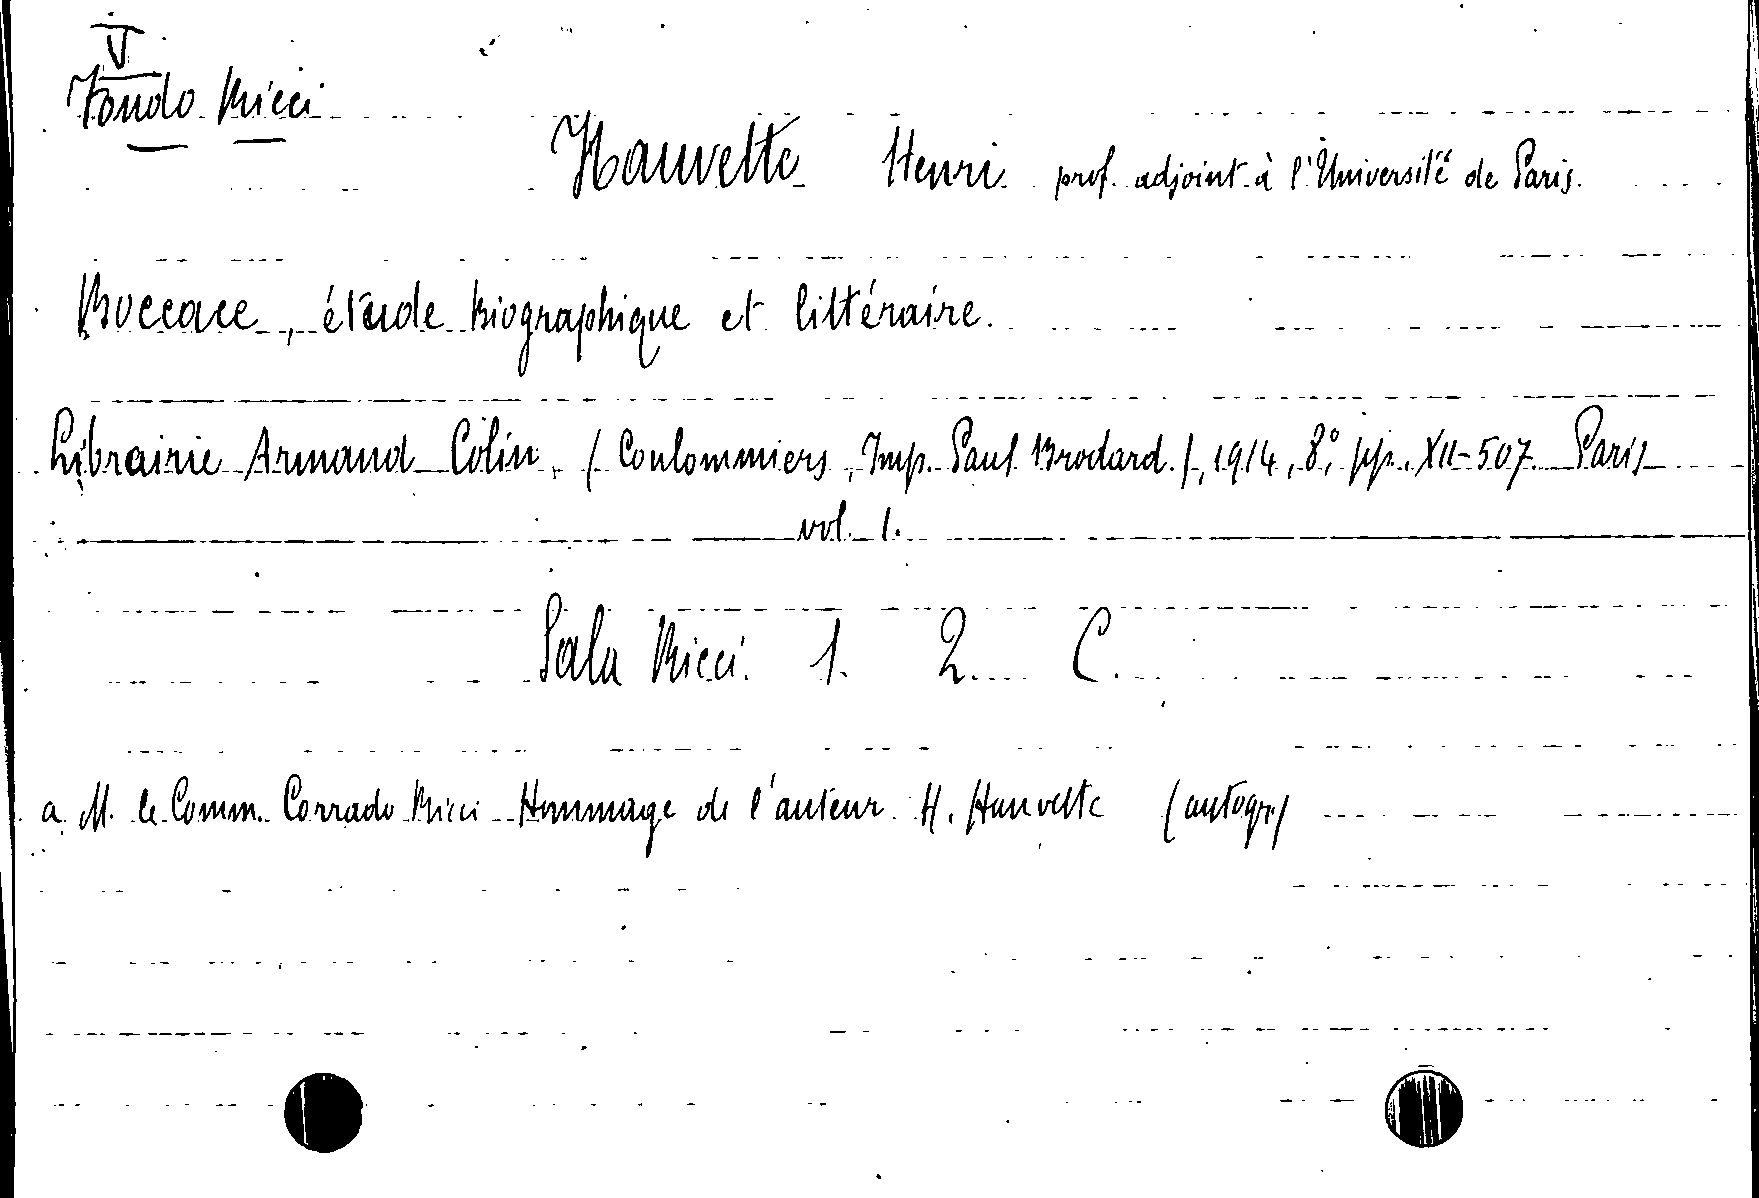 V
Fondo Ricci
Hauvette Henri prof. adjoint à l'Université de Paris.
Boccace, étude biographique et littéraire.
Librairie Armand Colin, (Coulommiers, Imp. Paul Brodard.), 1914, 8°, pp. XII-507. Paris
vol. 1.
Sala Ricci. 1. 2. C.
a M. le Comm. Corrado Ricci Hommage de l'auteur H. Hauvette (autogr.)